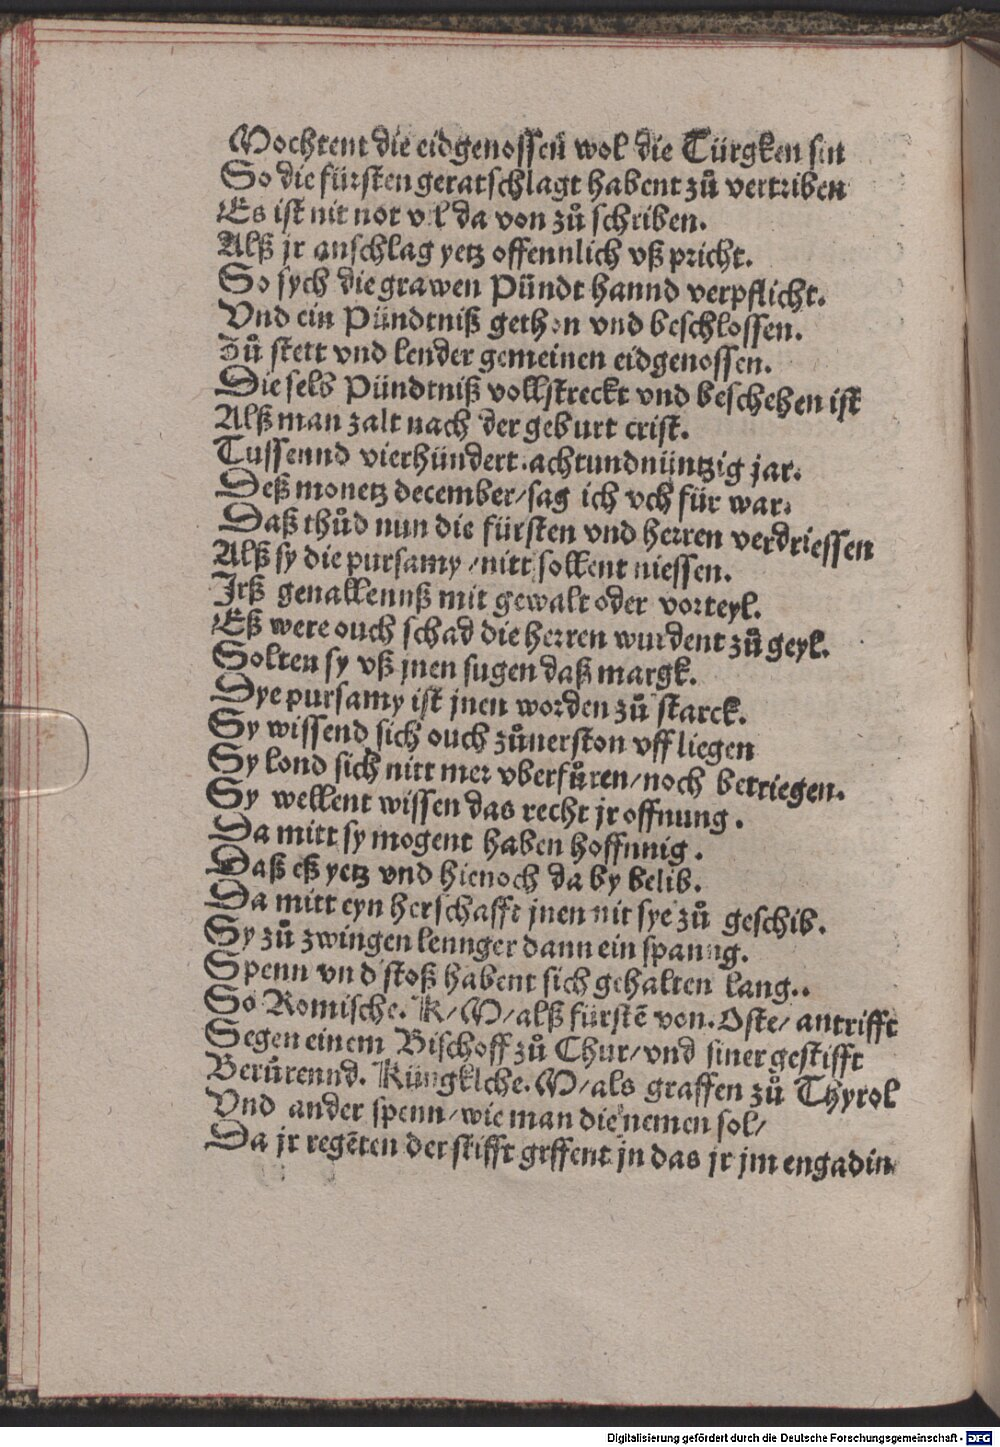 Mochtent die eidgenossen wol die Türgken sin
So die fürsten geratschlagt habent zů vertriben
Es ist nit not vil da von zů schriben.
Alß jr anschlag yetz offennlich vß pricht.
So sych die grawen Pündt hannd verpflicht.
Vnd ein Pündtniß gethon vnd beschlossen.
Zů stett vnd lender gemeinen eidgenossen.
Die selb Pündtniß vollstreckt vnd beschehen ist
Alß man zalt nach der geburt crist.
Tussennd vierhündert.achtundnüntzig jar.
Deß monetz december/sag ich vch für war.
Daß thůd nun die fürsten vnd herren verdriessen
Alß sy die pursamy/nitt sollent niessen.
Jrß genallennß mit gewalt oder vorteyl.
Eß were ouch schad die herren wurdent zů geyl.
Solten sy vß jnen sugen daß margk.
Dye pursamy ist jnen worden zů starck.
Sy wissend sich ouch zůnerston vff liegen
Sy lond sich nitt mer vberfůren/noch betriegen.
Sy wellent wissen das recht jr offnung.
Da mitt sy mogent haben hoffnnig.
Daß eß yetz vnd hienoch da by belib.
Da mitt eyn herschafft jnen nit sye zů geschib.
Sy zů zwingen lennger dann ein spanng.
Spenn vnd stoß habent sich gehalten lang..
So Romische. K/M/alß fürstē von.Oste/antrifft
Gegen einem Bischoff zů Chur/vnd siner gestifft
Berůrennd. Küngklche.M/als graffen zů Thyrol
Vnd ander spenn/wie man die nemen sol/
Da jr regēten der stifft grffent jn das jr jm engadin
Digitalisierung gefördert durch die Deutsche Forschungsgemeinschaft - DFG